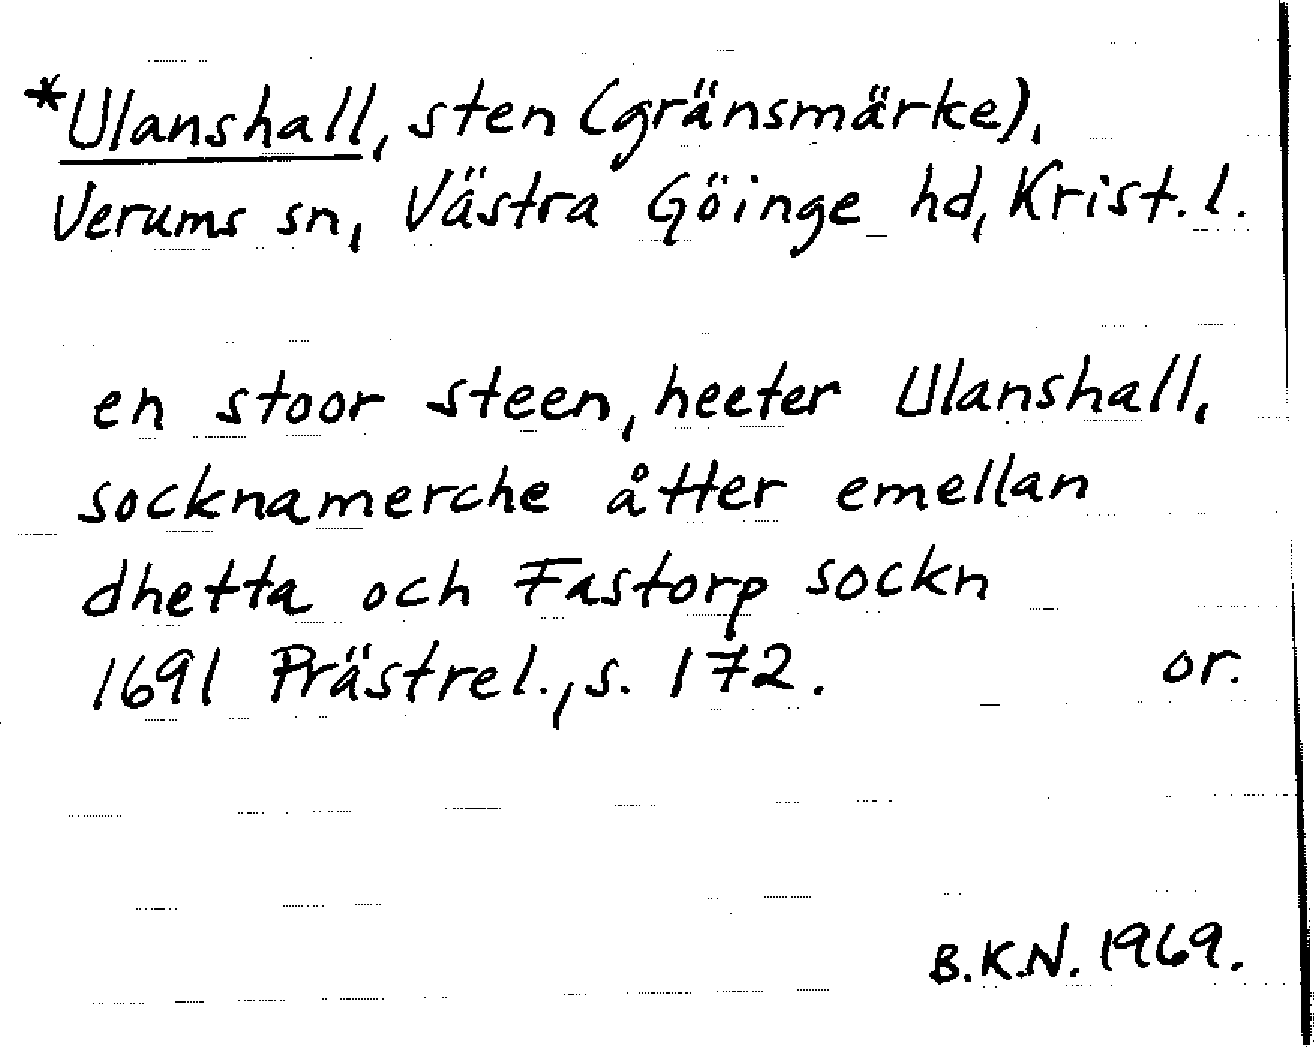 *Ulanshall, sten (gränsmärke),
Verums sn, Västra Göinge hd, Krist. l.
en stoor steen, heeter Ulanshall,
socknamerche åtter emellan
dhetta och Fastorp sockn
1691 Prästrel., s. 172. or.
B.K.N. 1969.